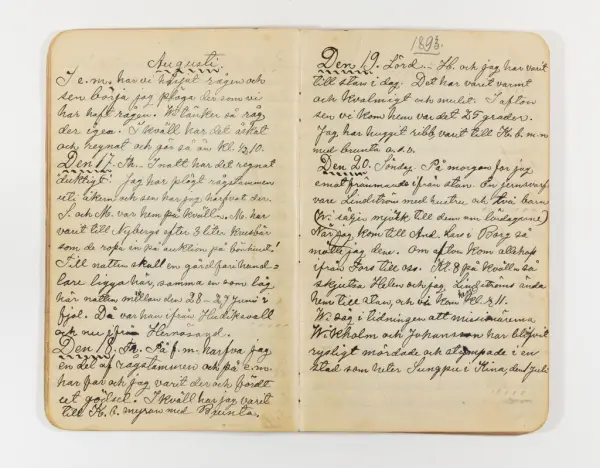 Augusti.
I e.m. har vi höjat rågen och
sen börja jag plöga der som vi
har haft rågen. Vi tänker så råg
der igen. I kväll har det åskat
och regnat och gör så än kl. ½10.
Den 17. Th. I natt har det regnat
duktigt. Jag har plögt rågstammen
uti åkern och sen har jag harfvat der.
S. och M. var hem på kväll'n. M. har
varit till Nybergs efter 3 liter krusbär
som de ropa in på auktion på bönhuset!
Till natten skall en gårdfarihand-
lare ligga här, samma en som låg
här natten mellan den 26–27 Juni i
fjol. Då var han ifrån Hudiksvall
och nu ifrån Hernösand.
Den 18. Fr. På f.m. harfva jag
en del af rågstammen och på e.m.
har far och jag varit der och fördt
ut gödsel. I kväll har jag varit
till K. B. myran med Brunta.
1893.
Den 19. Lörd. – H. och jag har varit
till stan i dag. Det har varit varmt
och kvalmigt och mulet. I afton
sen vi kom hem var det 25 grader.
Jag har huggit ribb, varit till K. B. m-n
med brunta o.s.v.
Den 20. Söndag. På morgon for jag
emot främmande ifrån stan. En jernsvarf-
vare Lindström med hustru och två barn
(W. säljer mjölk till dem om lördagarne)
När jag kom till And. Lars i Borg så
mötte jag dem. Om afton kom allihop
ifrån Fors till oss. Kl. 8 på kväll'n så
skjutsa Helen och jag Lindströms ända
hem till stan, och vi kom hem kl. ½ 11.
W. såg i tidningen att missionärerna
Wikholm och Johansson har blifvit
rysligt mördade och stympade i en
stad som heter Sungpu i Kina, den 1 Juli